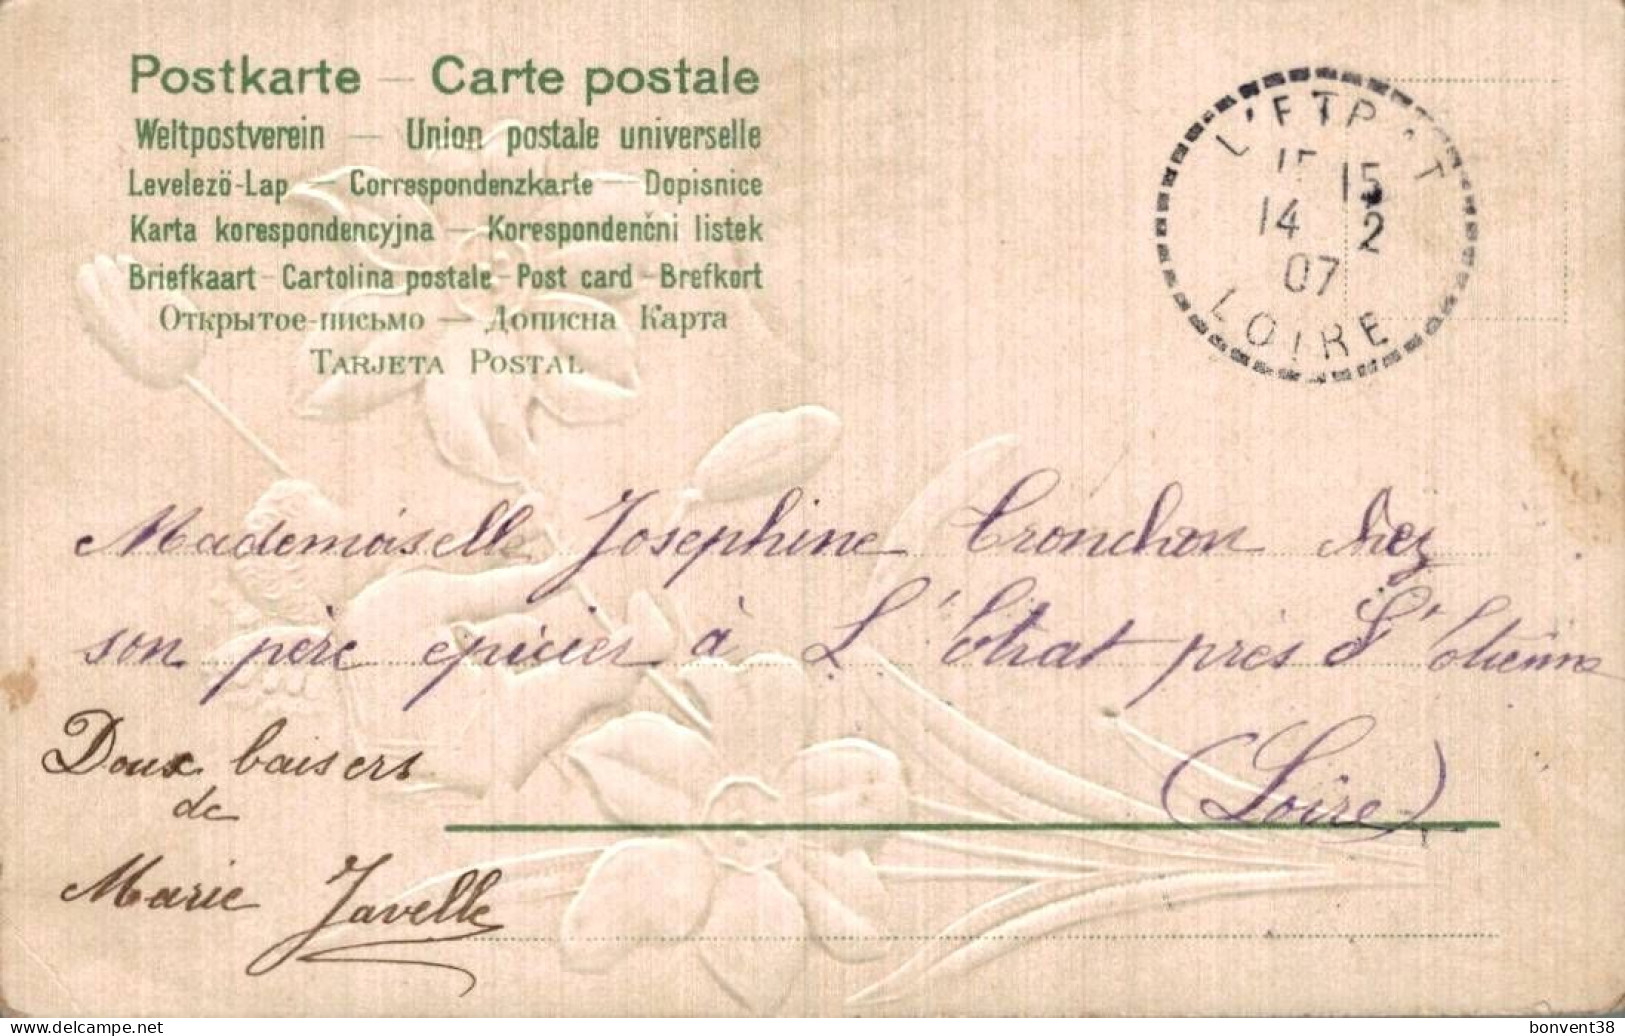 Postkarte — Carte postale
Weltpostverein — Union postale universelle
Levelező-Lap — Correspondenzkarte — Dopisnice
Karta korespondencyjna — Korespondenční listek
Briefkaart - Cartolina postale - Post card - Brefkort
Открытое-письмо — Дописна Карта
TARJETA POSTAL
15
14 2
07
LOIRE
Mademoiselle Josephine Tronchon chez
son père epicier à L'Etrat près St Etienne
(Loire)
Doux baisers
de
Marie Javelle
delcampe.net
bonvent38